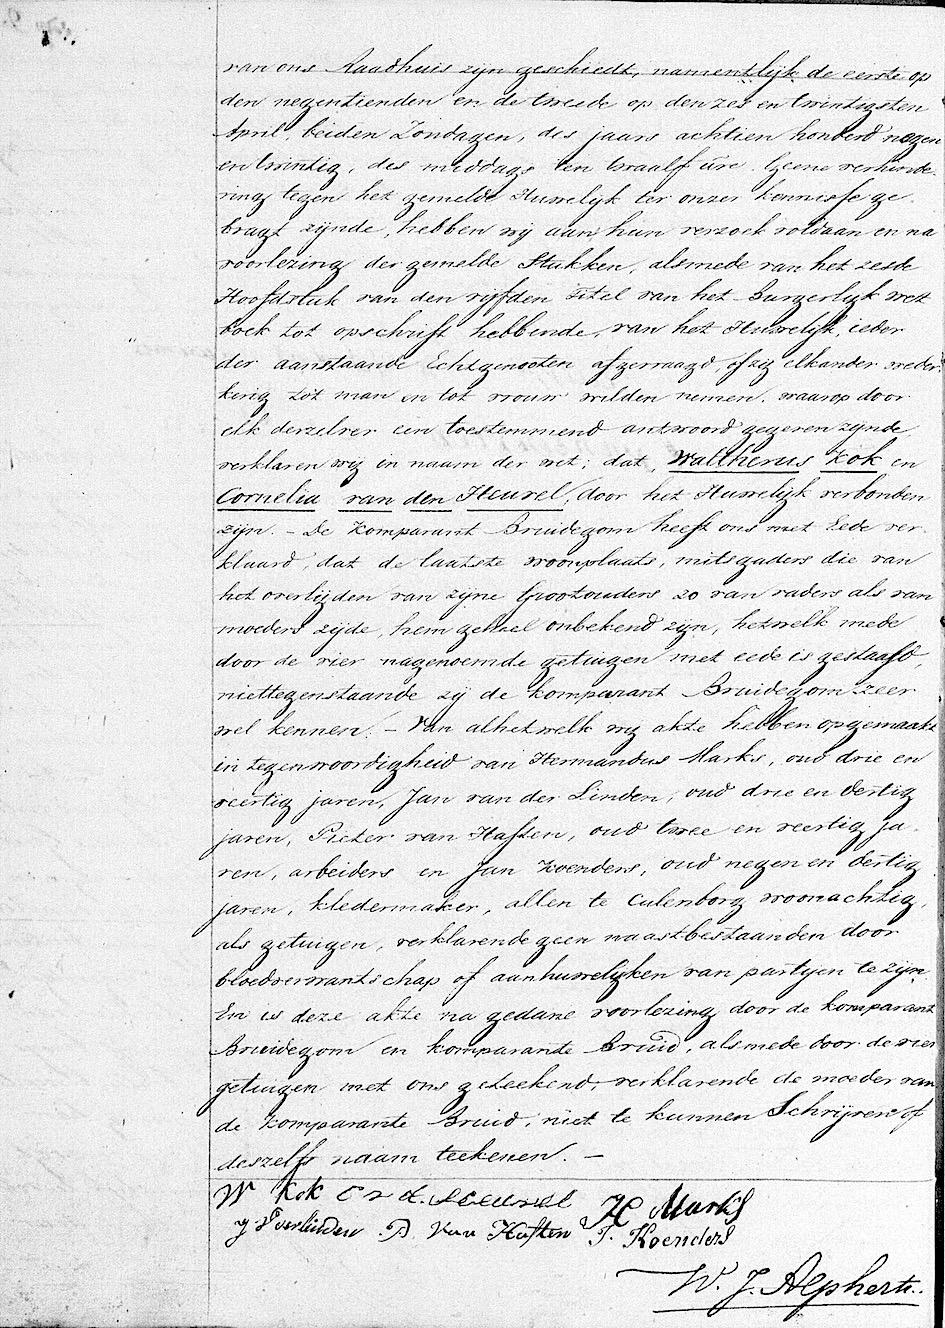 van ons Raadhuis zijn geschiedt, namentlijk de eerste op
den negentienden en de tweede op den zes en twintigsten
April, beiden Zondagen, des jaars achtien honderd negen
en twintig, des middags ten twaalf ure. Geene verhinde
ring tegen het gemelde Huwelijk ter onzer kennisse ge
bragt zijnde, hebben wij aan hun verzoek voldaan en na
voorlezing der gemelde Stukken, alsmede van het zesde
Hoofdstuk van den vijfden Titel van het Burgerlijk wet
boek tot opschrift hebbende, van het Huwelijk, ieder
der aanstaande Echtgenooten afgevraagd, of zij elkander weder
kerig tot man en tot vrouw wilden nemen, waarop door
elk derzelver een toestemmend antwoord gegeven zijnde,
verklaren wij in naam der wet; dat Waltherus Kok en
Cornelia van den Heuvel, door het Huwelijk verbonden
zijn. – De Komparant Bruidegom heeft ons met Eede ver
klaard, dat de laatste woonplaats, mitsgaders die van
het overlijden van zijne Grootouders zo van vaders als van
moeders zijde, hem geheel onbekend zijn, hetwelk mede
door de vier nagenoemde getuigen met eede is gestaafd,
niettegenstaande zij de komparant Bruidegom zeer
wel kennen. – Van al hetwelk wij akte hebben opgemaakt
in tegenwoordigheid van Hermandus Marks, oud drie en
veertig jaren, Jan van der Linden, oud drie en dertig
jaren, Pieter van Haften, oud twee en veertig ja
ren, arbeiders en Jan Koenders, oud negen en dertig
jaren, kledermaker, allen te Culenborg woonachtig,
als getuigen, verklarende geen naastbestaanden door
bloedverwantschap of aanhuwelijken van partijen te zijn.
En is deze akte na gedane voorlezing door de komparant
Bruidegom en komparante Bruid, alsmede door de vier
getuigen met ons geteekend, verklarende de moeder van
de komparante Bruid, niet te kunnen Schrijven of
deszelfs naam teekenen. –
W Kok C v d. Heuvel H Marks
J Verlinden P Van Haften J. Koenders
W. J. Alpherts.